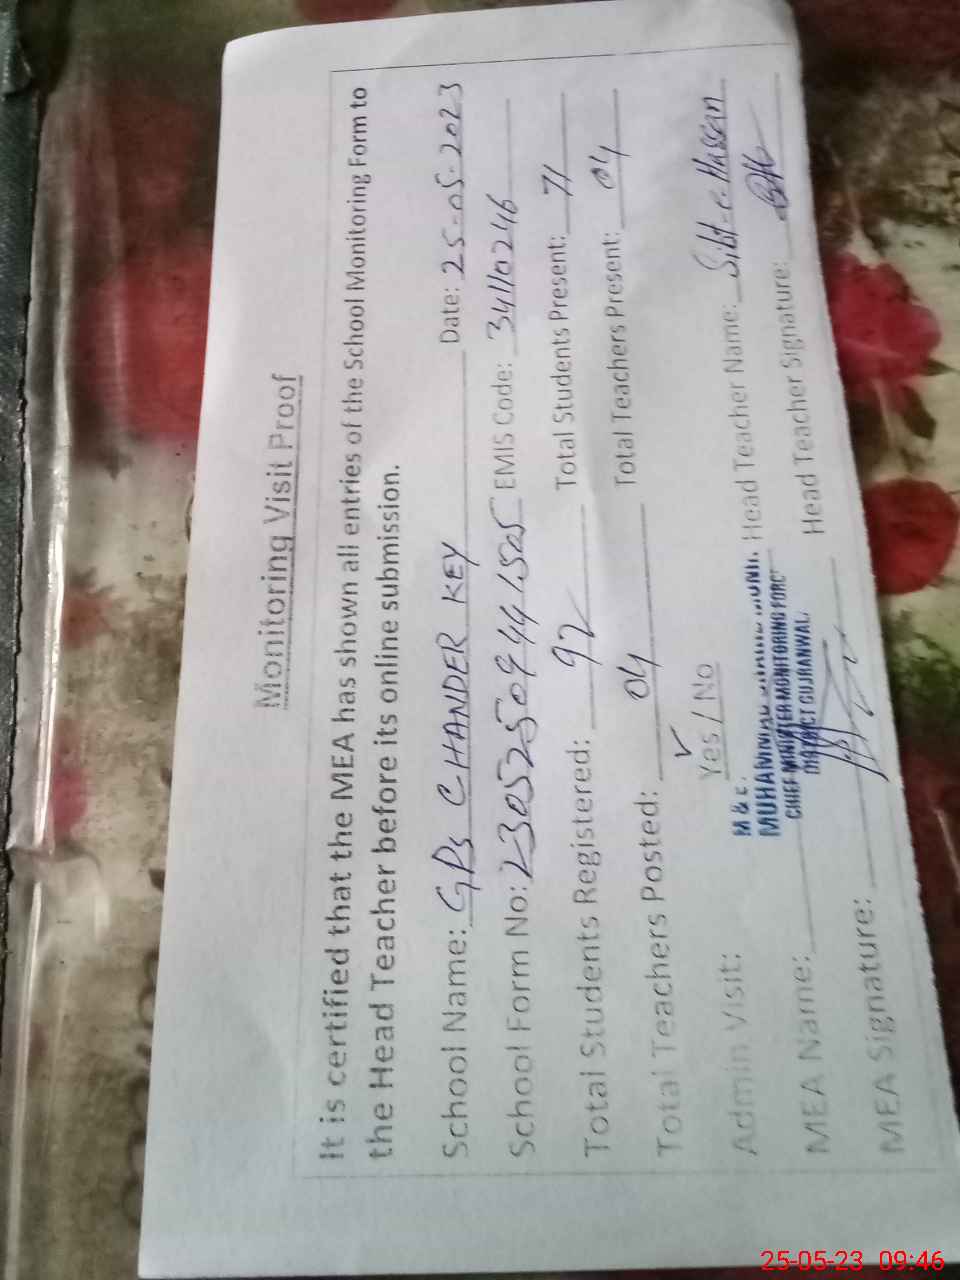 Monitoring Visit Proof
It is certified that the MEA has shown all entries of the School Monitoring Form to
the Head Teacher before its online submission.
School Name: GPS CHANDER KEY Date: 25-05-2023
School Form No: 230525094441505 EMIS Code: 34110246
Total Students Registered: 92 Total Students Present: 71
Total Teachers Posted: 04 Total Teachers Present: 04
Admin Visit: Yes / No Head Teacher Name: Sibt-e-Hassan
MEA Name: Head Teacher Signature:
MEA Signature:
M & E.
MUHAMMAD
CHIEF MINISTER MONITORING FORCE
DISTRICT GUJRANWAL.
25-05-23 09:46